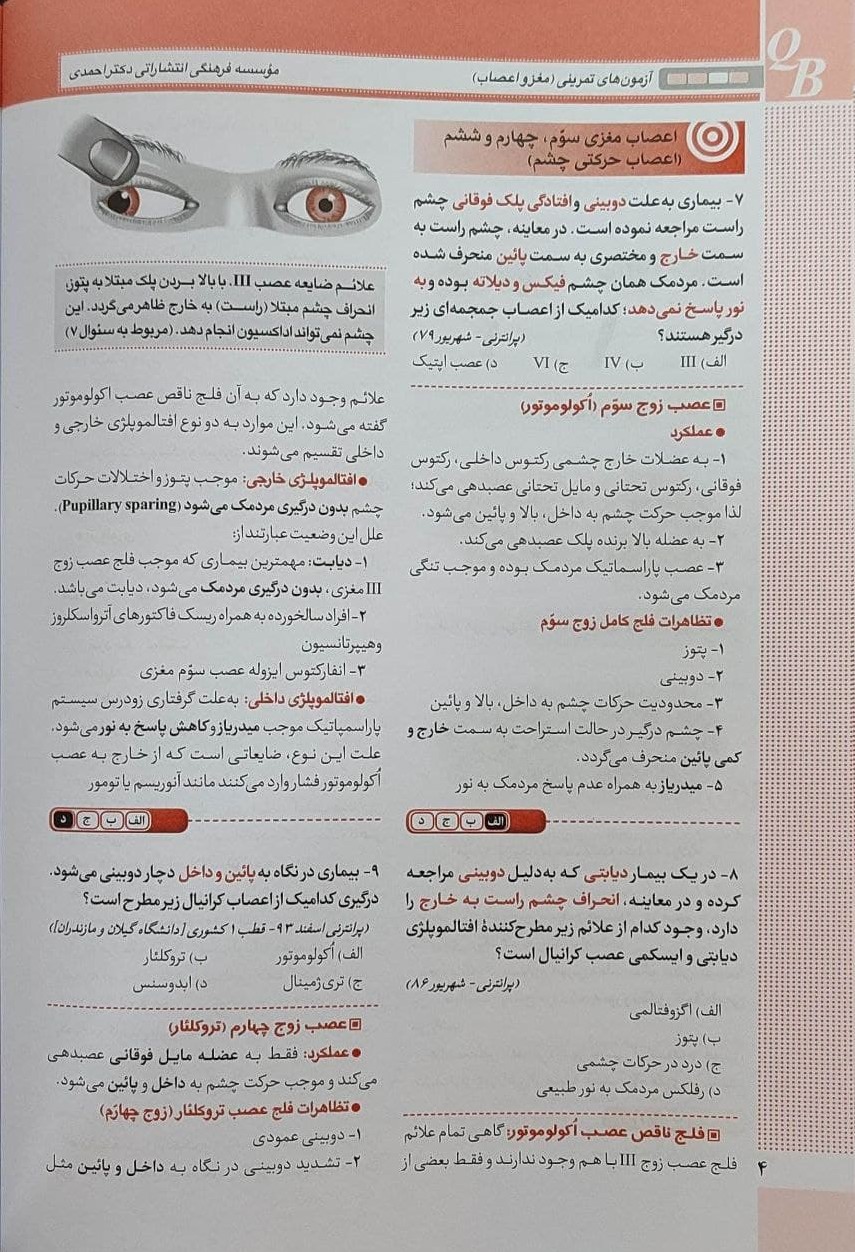 QB
آزمون‌های تمرینی (مغز و اعصاب)
مؤسسه فرهنگی انتشاراتی دکتر احمدی
اعصاب مغزی سوّم، چهارم و ششم
(اعصاب حرکتی چشم)
۷- بیماری به‌علت دوبینی و افتادگی پلک فوقانی چشم
راست مراجعه نموده است. در معاینه، چشم راست به
سمت خارج و مختصری به سمت پائین منحرف شده
است. مردمک همان چشم فیکس و دیلاته بوده و به
نور پاسخ نمی‌دهد؛ کدامیک از اعصاب جمجمه‌ای زیر
درگیر هستند؟
(پرانترنی- شهریور ۷۹)
الف) III ب) IV ج) VI د) عصب اپتیک
عصب زوج سوّم (اُکولوموتور)
● عملکرد
۱- به عضلات خارج چشمی رکتوس داخلی، رکتوس
فوقانی، رکتوس تحتانی و مایل تحتانی عصبدهی می‌کند؛
لذا موجب حرکت چشم به داخل، بالا و پائین می‌شود.
۲- به عضله بالا برنده پلک عصبدهی می‌کند.
۳- عصب پاراسماتیک مردمک بوده و موجب تنگی
مردمک می‌شود.
● تظاهرات فلج کامل زوج سوّم
۱- پتوز
۲- دوبینی
۳- محدودیت حرکات چشم به داخل، بالا و پائین
۴- چشم درگیر در حالت استراحت به سمت خارج و
کمی پائین منحرف می‌گردد.
۵- میدریاز به همراه عدم پاسخ مردمک به نور
الف ب ج د
۸- در یک بیمار دیابتی که به‌دلیل دوبینی مراجعه
کرده و در معاینه، انحراف چشم راست به خارج را
دارد، وجود کدام از علائم زیر مطرح‌کنندۀ افتالموپلژی
دیابتی و ایسکمی عصب کرانیال است؟
(پرانترنی- شهریور ۸۶)
الف) اگزوفتالمی
ب) پتوز
ج) درد در حرکات چشمی
د) رفلکس مردمک به نور طبیعی
فلج ناقص عصب اُکولوموتور: گاهی تمام علائم
فلج عصب زوج III با هم وجود ندارند و فقط بعضی از
علائم ضایعه عصب III. با بالا بردن پلک مبتلا به پتوز،
انحراف چشم مبتلا (راست) به خارج ظاهر می‌گردد. این
چشم نمی‌تواند اداکسیون انجام دهد. (مربوط به سئوال ۷)
علائم وجود دارد که به آن فلج ناقص عصب اکولوموتور
گفته می‌شود. این موارد به دو نوع افتالموپلژی خارجی و
داخلی تقسیم می‌شوند.
● افتالموپلژی خارجی: موجب پتوز و اختلالات حرکات
چشم بدون درگیری مردمک می‌شود (Pupillary sparing).
علل این وضعیت عبارتند از:
۱- دیابت: مهمترین بیماری که موجب فلج عصب زوج
III مغزی، بدون درگیری مردمک می‌شود، دیابت می‌باشد.
۲- افراد سالخورده به همراه ریسک فاکتورهای آترواسکلروز
و هیپرتانسیون
۳- انفارکتوس ایزوله عصب سوّم مغزی
● افتالموپلژی داخلی: به‌علت گرفتاری زودرس سیستم
پاراسمپاتیک موجب میدریاز و کاهش پاسخ به نور می‌شود.
علت این نوع، ضایعاتی است که از خارج به عصب
اُکولوموتور فشار وارد می‌کنند مانند آنوریسم یا تومور
الف ب ج د
۹- بیماری در نگاه به پائین و داخل دچار دوبینی می‌شود.
درگیری کدامیک از اعصاب کرانیال زیر مطرح است؟
(پرانترنی اسفند ۹۳- قطب ۱ کشوری [دانشگاه گیلان و مازندران])
الف) اُکولوموتور ب) تروکلئار
ج) تری‌ژمینال د) ابدوسنس
عصب زوج چهارم (تروکلئار)
● عملکرد: فقط به عضله مایل فوقانی عصبدهی
می‌کند و موجب حرکت چشم به داخل و پائین می‌شود.
● تظاهرات فلج عصب تروکلئار (زوج چهارَم)
۱- دوبینی عمودی
۲- تشدید دوبینی در نگاه به داخل و پائین مثل
۴